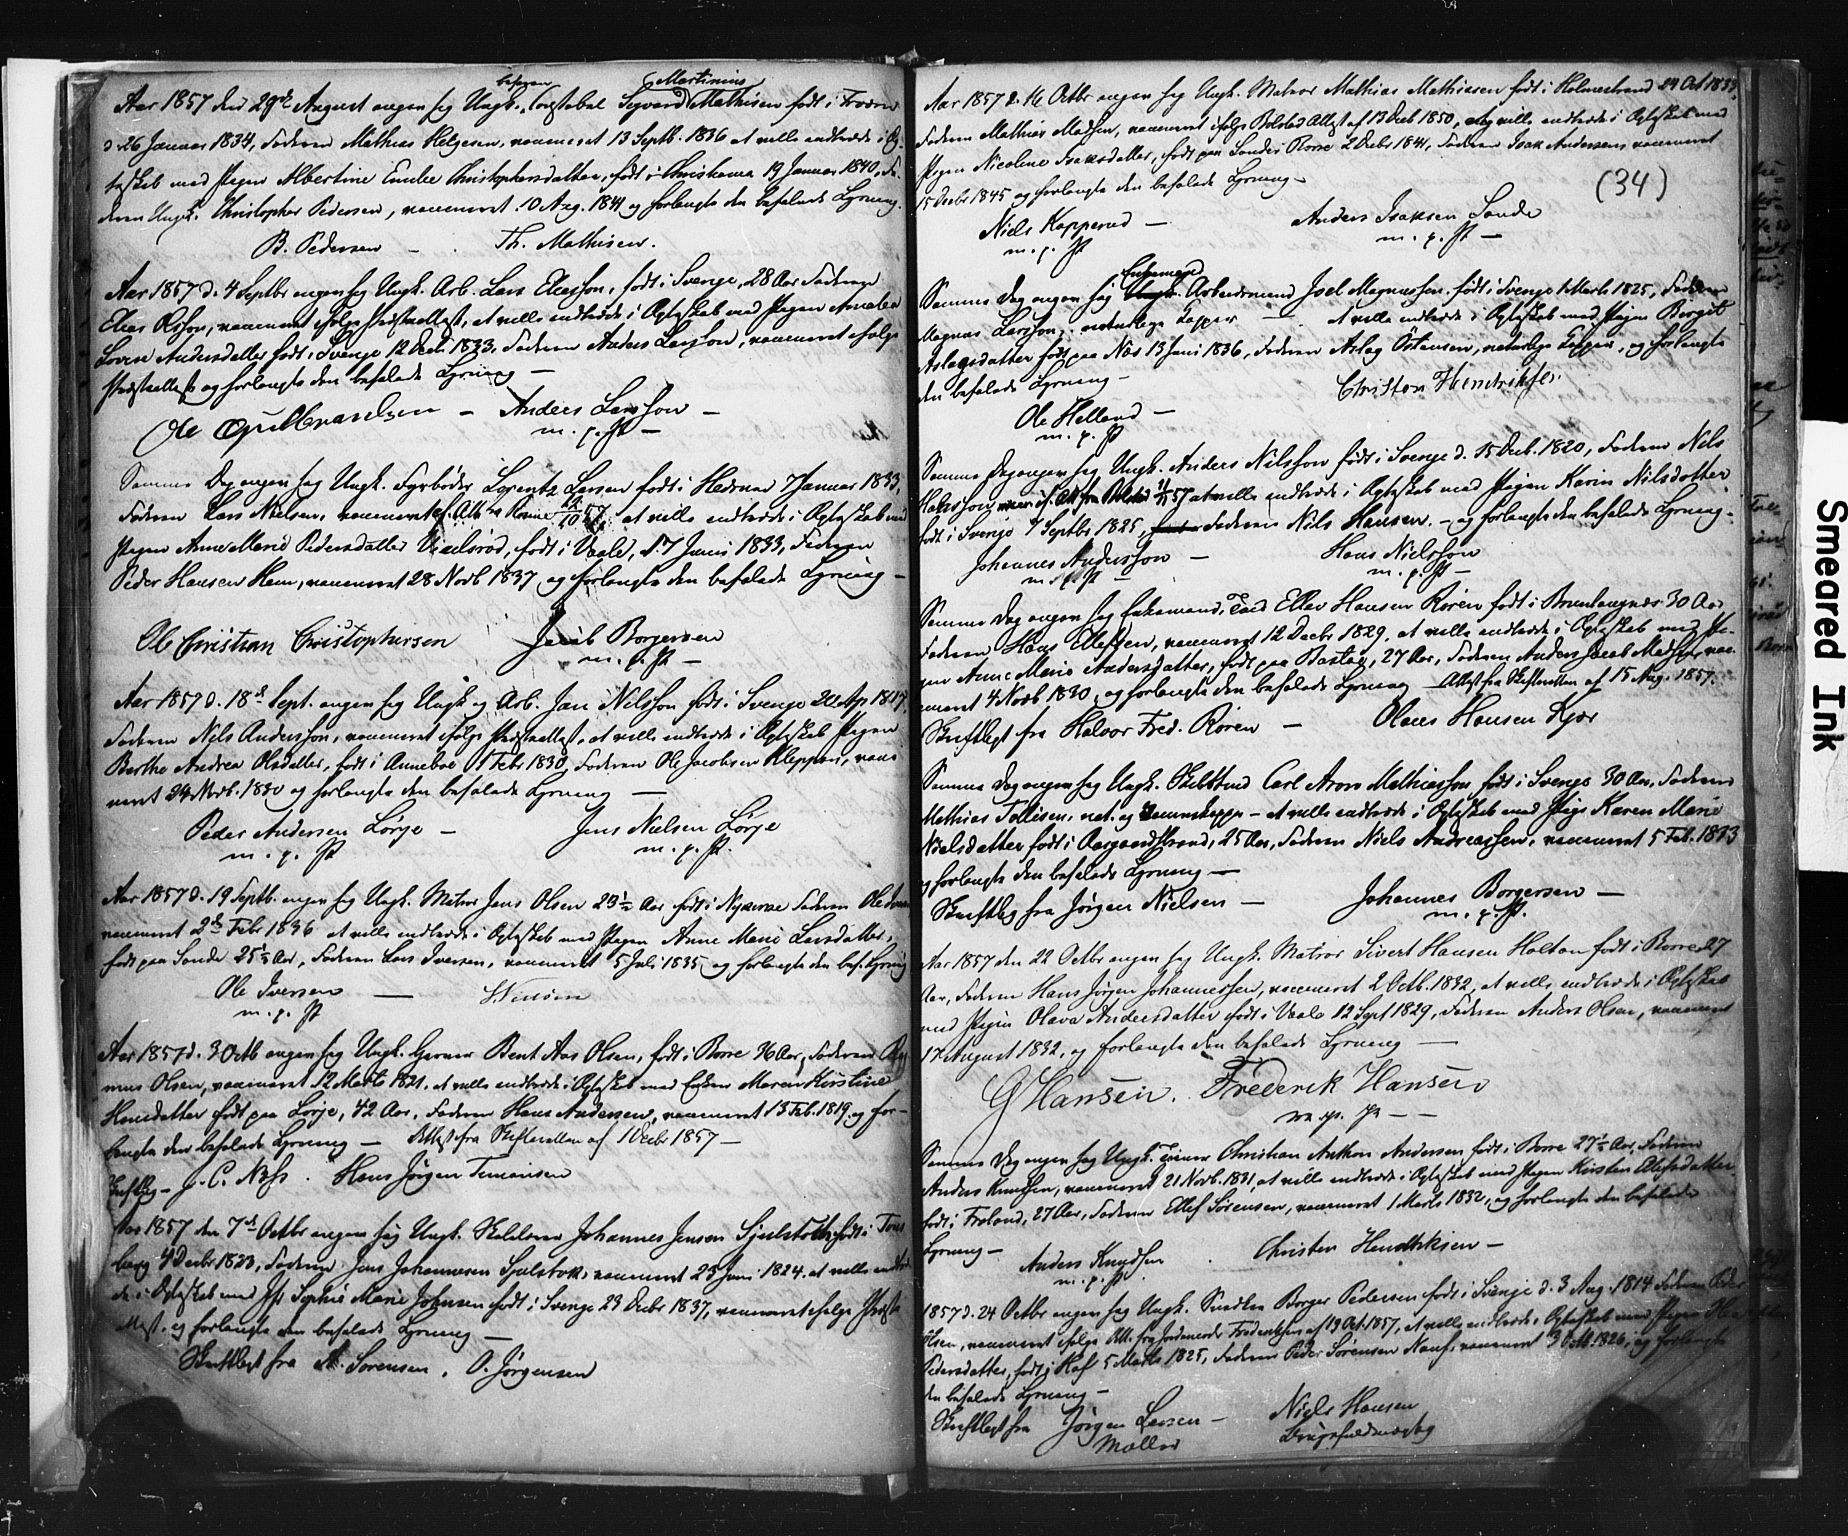 befaren Martinius
Aar 1857 den 29de August angav sig Ungk. Constabel Sigvard Mathisen født i Froen
d 26 Januar 1834, Faderen Mathias Helgesen, vaccineret 13 Septb. 1836 at ville indtræde i Æg-
teskab med Pigen Albertine Emilie Christophersdatter, født i Christiania 19 Januar 1840, Fa-
deren Ungk. Christopher Pedersen, vaccineret 10 Aug. 1841 og forlangte den befalede Lysning.
B. Pedersen - Th. Mathisen.
Aar 1857 d. 4 Septbr angav sig Ungk. Arb. Lars Eliasson, født i Sverige, 28 Aar Faderen
Elias Olsson, vaccineret ifølge Præsteattest, at ville indtræde i Ægteskab med Pigen Annalea
Lovise Andersdatter født i Sverige 12 Decb 1833, Faderen Anders Larsson, vaccineret ifølge
Præsteattest og forlangte den befalede Lysning -
Ole - Anders Larsson -
m. p. P -
Samme Dag angav sig Ungk. Fyrbøder Lorentz Larsen født i Hedrum 7 Januar 1833,
Faderen Lars Nielsen, vaccineret at ville indtræde i Ægteskab med
Pigen Anne Marie Pedersdatter født i Vaale, d. 7 Juni 1833, Faderen
Peder Hansen Hem, vaccineret 28 Novb 1837 og forlangte den befalede Lysning -
Ole Christian Christophersen Jacob Borgersen
m. p. P -
Aar 1857 d. 18de Sept. angav sig Ungk og Arb. Jan Nilsson født i Sverige
Faderen Nils Andersson, vaccineret ifølge Præsteattest, at ville indtræde i Ægteskab Pigen
Berthe Andrea Olsdatter, født i Anneboe 1 Febr 1830, Faderen Ole Jacobsen Kleppan, vacci-
neret 24 Novb. 1830 og forlangte den befalede Lysning -
Peder Andersen Lørge - Jens Nielsen Lørge
m. p. P m. p. P.
Aar 1857 d. 19 Septb. angav sig Ungk. Matros Jens Olsen 23½ Aar født i Faderen Ole
vaccineret 2de Febr 1836 at ville indtræde i Ægteskab med Pigen Anne Marie Larsdatter,
født paa Sande 25½ Aar, Faderen Lars Iversen, vaccineret 5 Juli 1835 og forlangte den bef. Lysning
Ole Iversen -
m. p. P
Aar 1857 d. 3 Octb angav sig Ungk. Garver Bent Aas Olsen, født i Borre 36 Aar, Faderen
Olsen, vaccineret 12 Marts 1821, at ville indtræde i Ægteskab med Enken Maren Kirstine
Hansdatter født paa Lørje, 42 Aar, Faderen Hans Andersen, vaccineret 13 Feb. 1819 og for-
langte den befalede Lysning - Attest fra Skifteretten af 1 Decbr 1857 -
Skriftlig - J. C. Hans Jørgen
Aar 1857 den 7de Octbr angav sig Ungk. Johannes Jensen født i Tøns-
berg 4 Decbr 1823, Faderen Jens Johannesen vaccineret 25 Juni 1824 at ville indtræ-
de i Ægteskab med P. Sophie Marie Johnsen født i Sverige 23 Decbr 1837, vaccineret ifølge Præste-
Attest. og forlangte den befalede Lysning -
Skriftligt fra A. Sørensen. O. Jørgensen
Aar 1857 d. 16 Octbr angav sig Ungk. Matros Mathias Mathiesen født i Holmestrand 24 Oct 1833,
Faderen Mathias Madsen, vaccineret ifølge Attest af 13 Decb 1850, at ville indtræde i Ægteskab med
Pigen Nicoline Isaksdatter, født paa Sande i Borre 2 Decbr 1841, Faderen Isak Andersen, vaccineret
15 Decbr 1845 og forlangte den befalede Lysning -
(34)
Niels Kopperud - Anders Isaksen Sande
m. p. P m. p. P -
Enkemand
Samme Dag angav sig Ungk. Arbeidsmand Joel Magnussen født i Sverige 1 Marts 1825, Faderen
Magnus Larsson, naturlige Kopper - at ville indtræde i Ægteskab med Pigen Bergit
Aslagsdatter født paa Næs 13 Juni 1836, Faderen Aslag Østensen, naturlige Kopper, og forlangte
den befalede Lysning -
Ole Helland - Christen Hendriksen
m. p. P
Samme Dag angav sig Ungk. Anders Nilsson født i Sverige d. 15 Decb. 1820, Faderen Nils
at ville indtræde i Ægteskab med Pigen Karin Nilsdotter
født i Sverige 7 Septbr 1825, Faderen Nils Hansen. - og forlangte den befalede Lysning.
Johannes Andersson - Hans Nielsson
m. p. P - m. p. P -
Samme Dag angav sig Enkemand Ellev Hansen Røren født i 30 Aar
Faderen Hans Ellefsen, vaccineret 12 Decbr 1829, at ville indtræde i Ægteskab med Pi-
gen Anne Marie Andersdatter, født paa Bastøy, 27 Aar, Faderen Anders Jacob Madsen, vac-
cineret 4 Novb 1830, og forlangte den befalede Lysning - Attest fra Skifteretten af 15 Aug. 1857.
Skriftligt fra Halvor Fred. Røren - Olaus Hansen Kjær
Samme Dag angav sig Ungk. Carl Aron Mathiasson født i Sverige 30 Aar, Faderen
Mathias nat. og - at ville indtræde i Ægteskab med Pige Karen Marie
Nielsdatter født i Aasgaardstrand, 25 Aar, Faderen Niels Andreassen, vaccineret 5 Feb. 1833
og forlangte den befalede Lysning -
Skriftlig fra Jørgen Nielsen - Johannes Borgersen -
m. p. P.
Aar 1857 den 22 Octbr angav sig Ungk. Matros Sivert Hansen Holtan født i Borre 27
Aar, Faderen Hans Jørgen Johannessen, vaccineret 2 Octb. 1832, at ville indtræde i Ægteskab
med Pigen Olava Andersdatter født i Vaale 12 Sept 1829, Faderen Anders Olsen, vaccineret
17 August 1832, og forlangte den befalede Lysning -
G Hansen. Frederik Hansen
m. p. P - -
Samme Dag angav sig Ungk. Christian Anthon Andersen født i Borre 27½ Aar, Faderen
Anders Knudsen, vaccineret 21 Novb. 1831, at ville indtræde i Ægteskab med Pigen Kirsten Ellefsdatter
født i Froland, 27 Aar, Faderen Ellef Sørensen, vaccineret 1 Marts 1832, og forlangte den befalede
Lysning -
Anders Knudsen . Christen Hendriksen -
m. p. P.
1857 d. 24 Octbr angav sig Ungk. Borger Pedersen født i Sverige d. 3 Aug. 1814 Faderen Peder
Olsen, vaccineret ifølge Att. fra Jordemoder Frederiksen af 19 Oct. 1857, at ville indtræde i Ægteskab med Pigen
Pedersdatter, født i Hof 5 Marts 1825, Faderen Peder Sørensen vaccineret 3 Octb. 1826, og forlangte
den befalede Lysning -
Skriftligt fra Jørgen Larsen - Niels Hansen
Møller
Smeared Ink